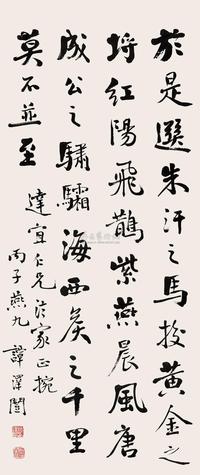 於是選朱汗之馬校黃金之
埒紅陽飛鵲紫燕晨風唐
成公之驌驦海西矦之千里
莫不並至
達宜仁兄法家正捥
丙子燕九 譚澤闓